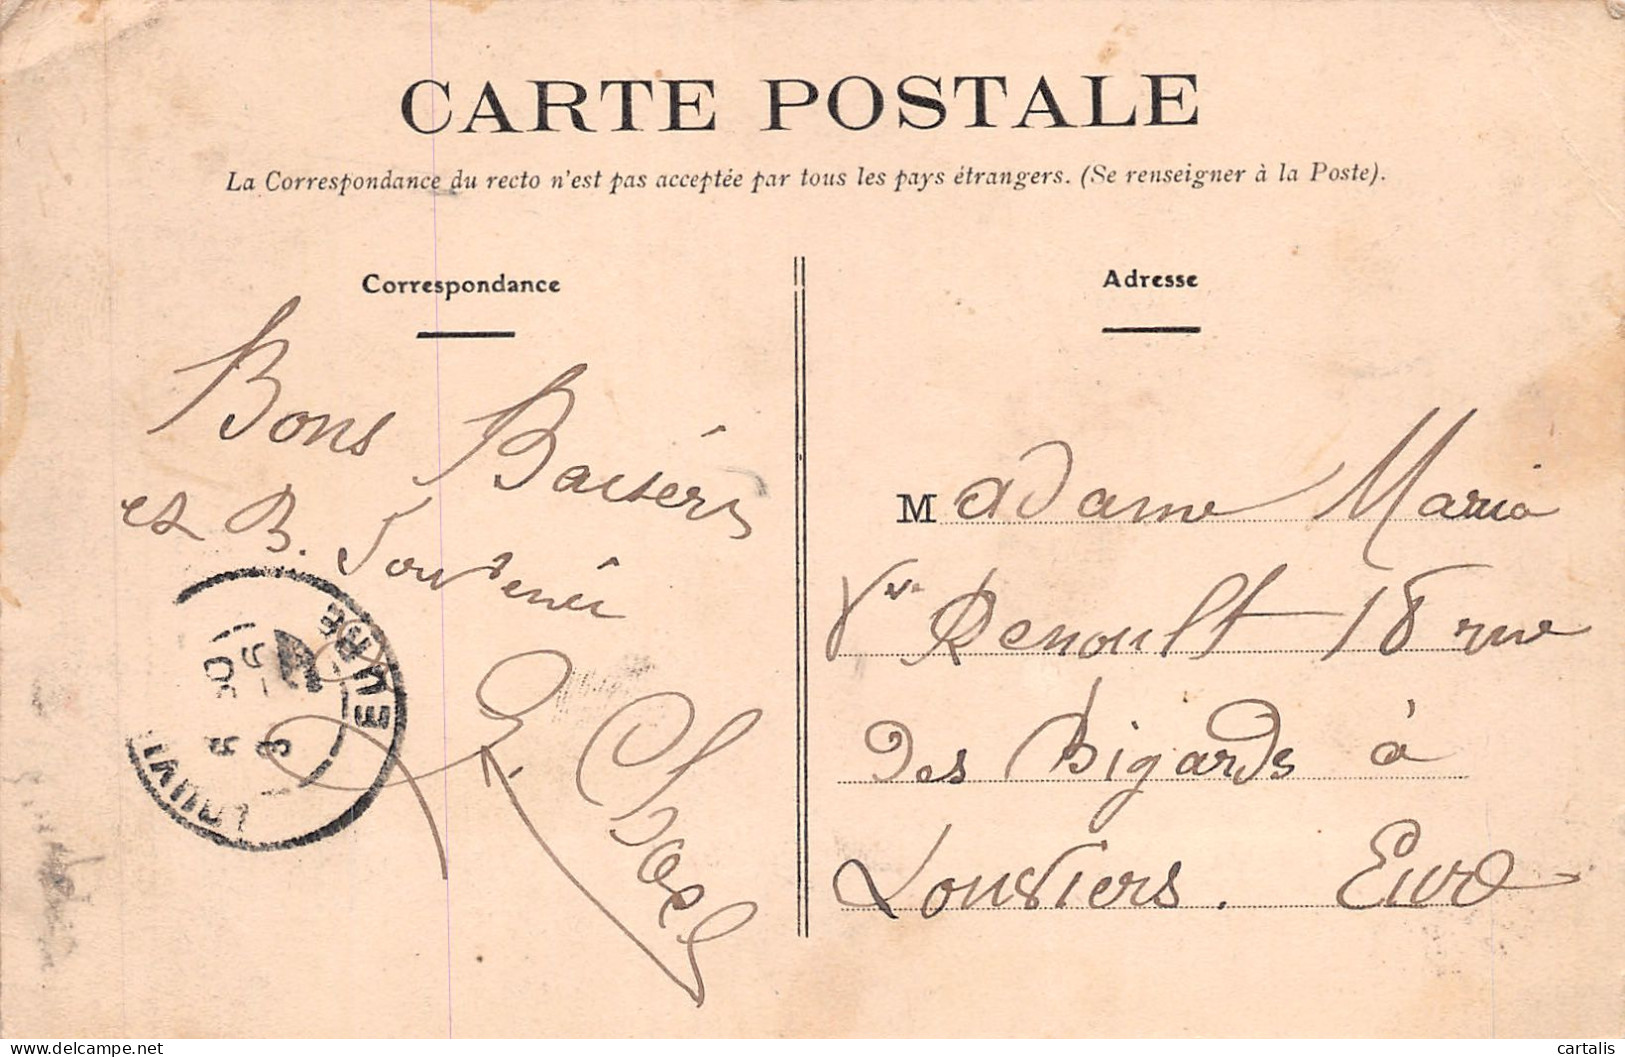 CARTE POSTALE
La Correspondance du recto n'est pas acceptée par tous les pays étrangers. (Se renseigner à la Poste).
Correspondance
Bons Baisérs
et B. Souvenir
LOUVI EURE
Adresse
Madame Maria
Vve Renoult 18 rue
des Bigards à
Louviers. Eure
https://www.delcampe.net
cartalis